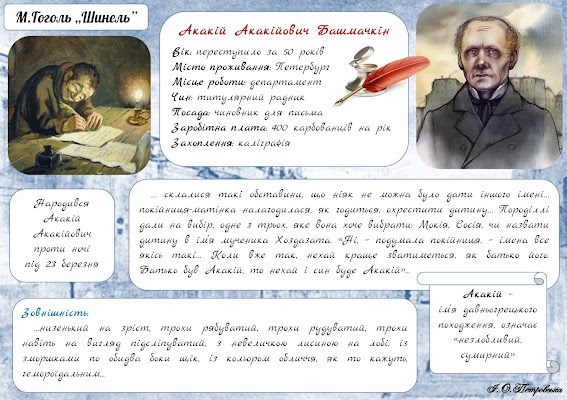 М.Гоголь „Шинель”
Акакій Акакійович Башмачкін
Вік: переступило за 50 років
Місто проживання: Петербург
Місце роботи: департамент
Чин: титулярний радник
Посада: чиновник для письма
Заробітна плата: 400 карбованців на рік
Захоплення: каліграфія
Народився
Акакій
Акакійович
проти ночі
під 23 березня
... склалися такі обставини, що ніяк не можна було дати іншого імені...
покійниця-матінка налагодилася, як годиться, охрестити дитину... Породіллі
дали на вибір, одне з трьох, яке вона хоче вибрати: Мокія, Сосія, чи назвати
дитину в ім'я мученика Хоздазата. «Ні, – подумала покійниця, – імена все
якісь такі... Коли вже так, нехай краще зватиметься, як батько його.
Батько був Акакій, то нехай і син буде Акакій»...
Зовнішність:
...низенький на зріст, трохи рябуватий, трохи рудуватий, трохи
навіть на вигляд підсліпуватий, з невеличкою лисиною на лобі, із
зморшками по обидва боки щік, із кольором обличчя, як то кажуть,
гемороїдальним...
Акакій –
ім'я давньогрецького
походження, означає
«незлобливий,
сумирний»
І. О. Петровська